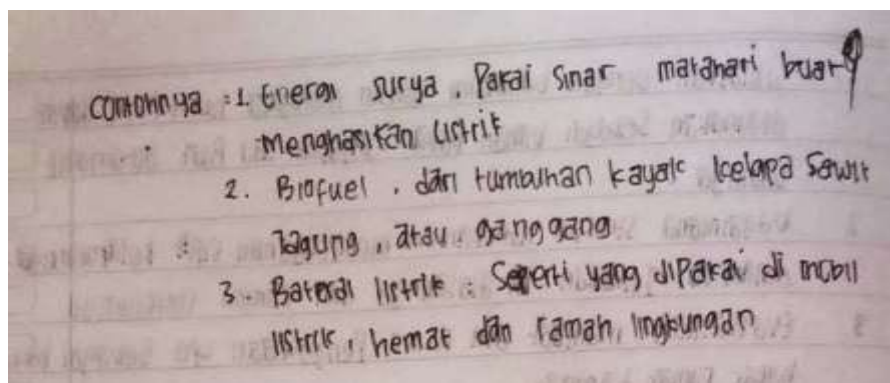 Contohnya : 1. Energi surya, Pakai Sinar matahari buat
Menghasilkan listrik
2. Biofuel, dari tumbuhan kayak kelapa Sawit
Jagung, atau ganggang
3. Baterai listrik : Seperti yang dipakai di mobil
listrik, hemat dan ramah lingkungan